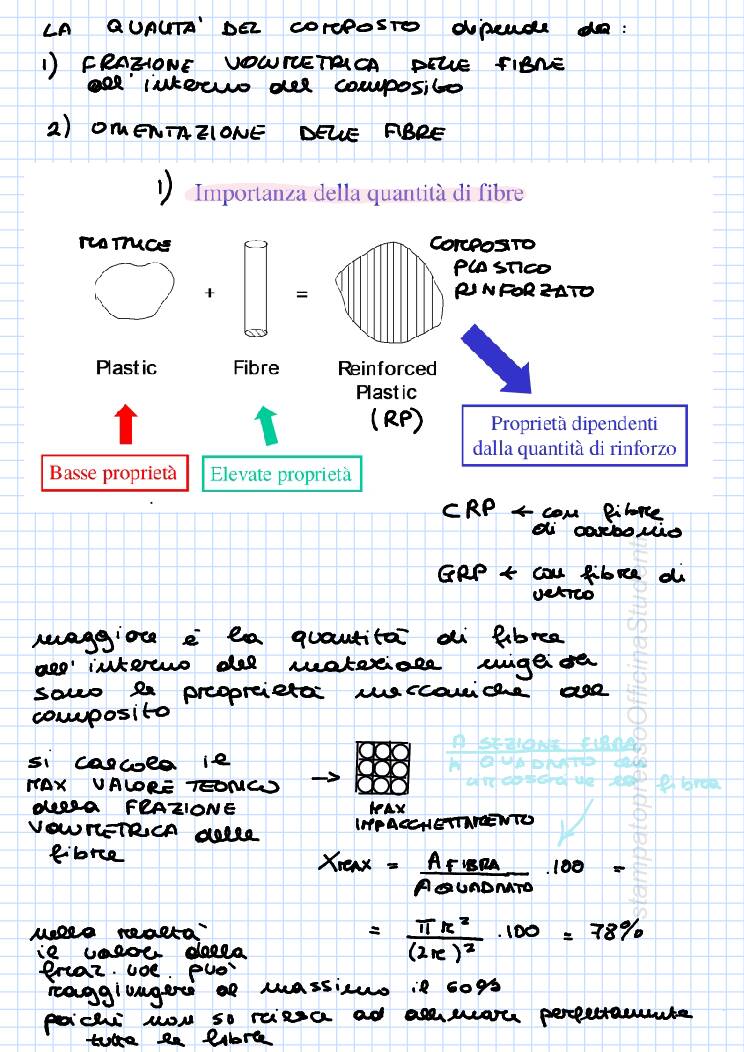 LA QUALITA' DEL COMPOSTO dipende da:
1) FRAZIONE VOLUMETRICA DELLE FIBRE
all'interno del composito
2) ORIENTAZIONE DELLE FIBRE
1) Importanza della quantità di fibre
MATRICE
COMPOSITO
PLASTICO
RINFORZATO
+ =
Plastic Fibre Reinforced
Plastic
(RP)
Proprietà dipendenti
dalla quantità di rinforzo
Basse proprietà Elevate proprietà
CRP ← con fibre
di carbonio
GRP ← con fibre di
vetro
maggiore è la quantità di fibre
all'interno del materiale migliori
sono le proprietà meccaniche del
composito
si calcola il
MAX VALORE TEORICO →
della FRAZIONE
VOLUMETRICA delle
fibre
MAX
IMPACCHETTAMENTO
A SEZIONE FIBRA
A QUADRATO che
circoscrive la fibra
Xmax = A FIBRA / A QUADRATO . 100 =
= πr² / (2r)² . 100 = 78%
nella realtà
il valore della
fraz. vol. può
raggiungere al massimo il 60%
poichè non si riesce ad allineare perfettamente
tutte le fibre
stampatopressoOfficinaStudenti